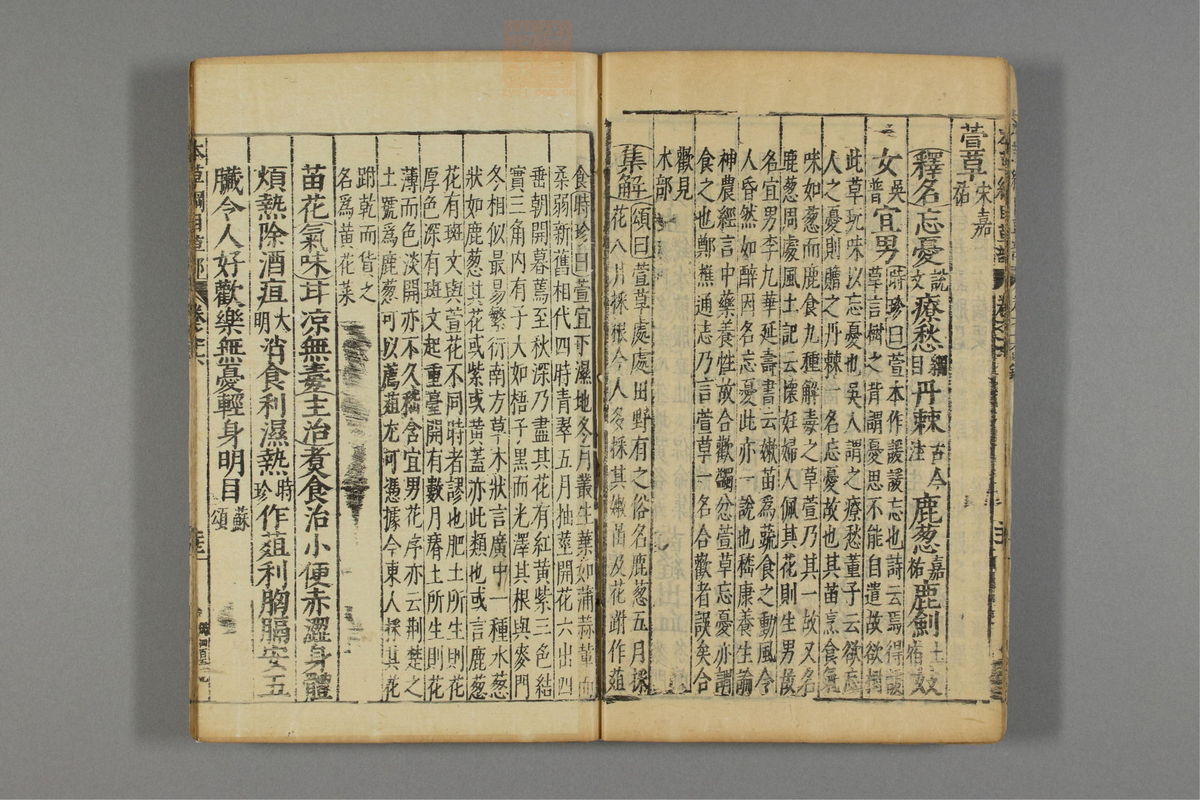 萱草宋嘉祐
釋名忘憂說文療愁綱目丹棘古今注鹿葱嘉祐鹿劍土宿妓
女吳普宜男時珍曰萱本作諼諼忘也詩云焉得諼草言樹之背謂憂思不能自遣故欲樹
此草玩味以忘憂也吳人謂之療愁董子云欲忘
人之憂則贈之丹棘一名忘憂故也其苗烹食氣
味如葱而鹿食九種解毒之草萱乃其一故又名
鹿葱周處風土記云懷妊婦人佩其花則生男故
名宜男李九華延壽書云嫩苗爲蔬食之動風令
人昏然如醉因名忘憂此亦一說也嵇康養生論
神農經言中藥養性故合歡蠲忿萱草忘憂亦謂
食之也鄭樵通志乃言萱草一名合歡者誤矣合
歡見
木部
集解頌曰萱草處處田野有之俗名鹿葱五月採
花八月採根今人多採其嫩苗及花跗作葅
食時珍曰萱宜下濕地冬月叢生葉如蒲蒜輩而
柔弱新舊相代四時青翠五月抽莖開花六出四
垂朝開暮蔫至秋深乃盡其花有紅黃紫三色結
實三角內有子大如梧子黑而光澤其根與麥門
冬相似最易繁衍南方草木狀言廣中一種水葱
狀如鹿葱其花或紫或黃蓋亦此類也或言鹿葱
花有斑文與萱花不同時者謬也肥土所生則花
厚色深有斑文起重臺開有數月瘠土所生則花
薄而色淡開亦不久嵇含宜男花序亦云荆楚之
土號爲鹿葱可以薦葅尤可憑據今東人採其花
跗乾而貨之
名爲黃花菜
苗花氣味甘凉無毒主治煑食治小便赤澀身體
煩熱除酒疸大明消食利濕熱時珍作葅利胸膈安五
臟令人好歡樂無憂輕身明目蘇頌
本草綱目草部